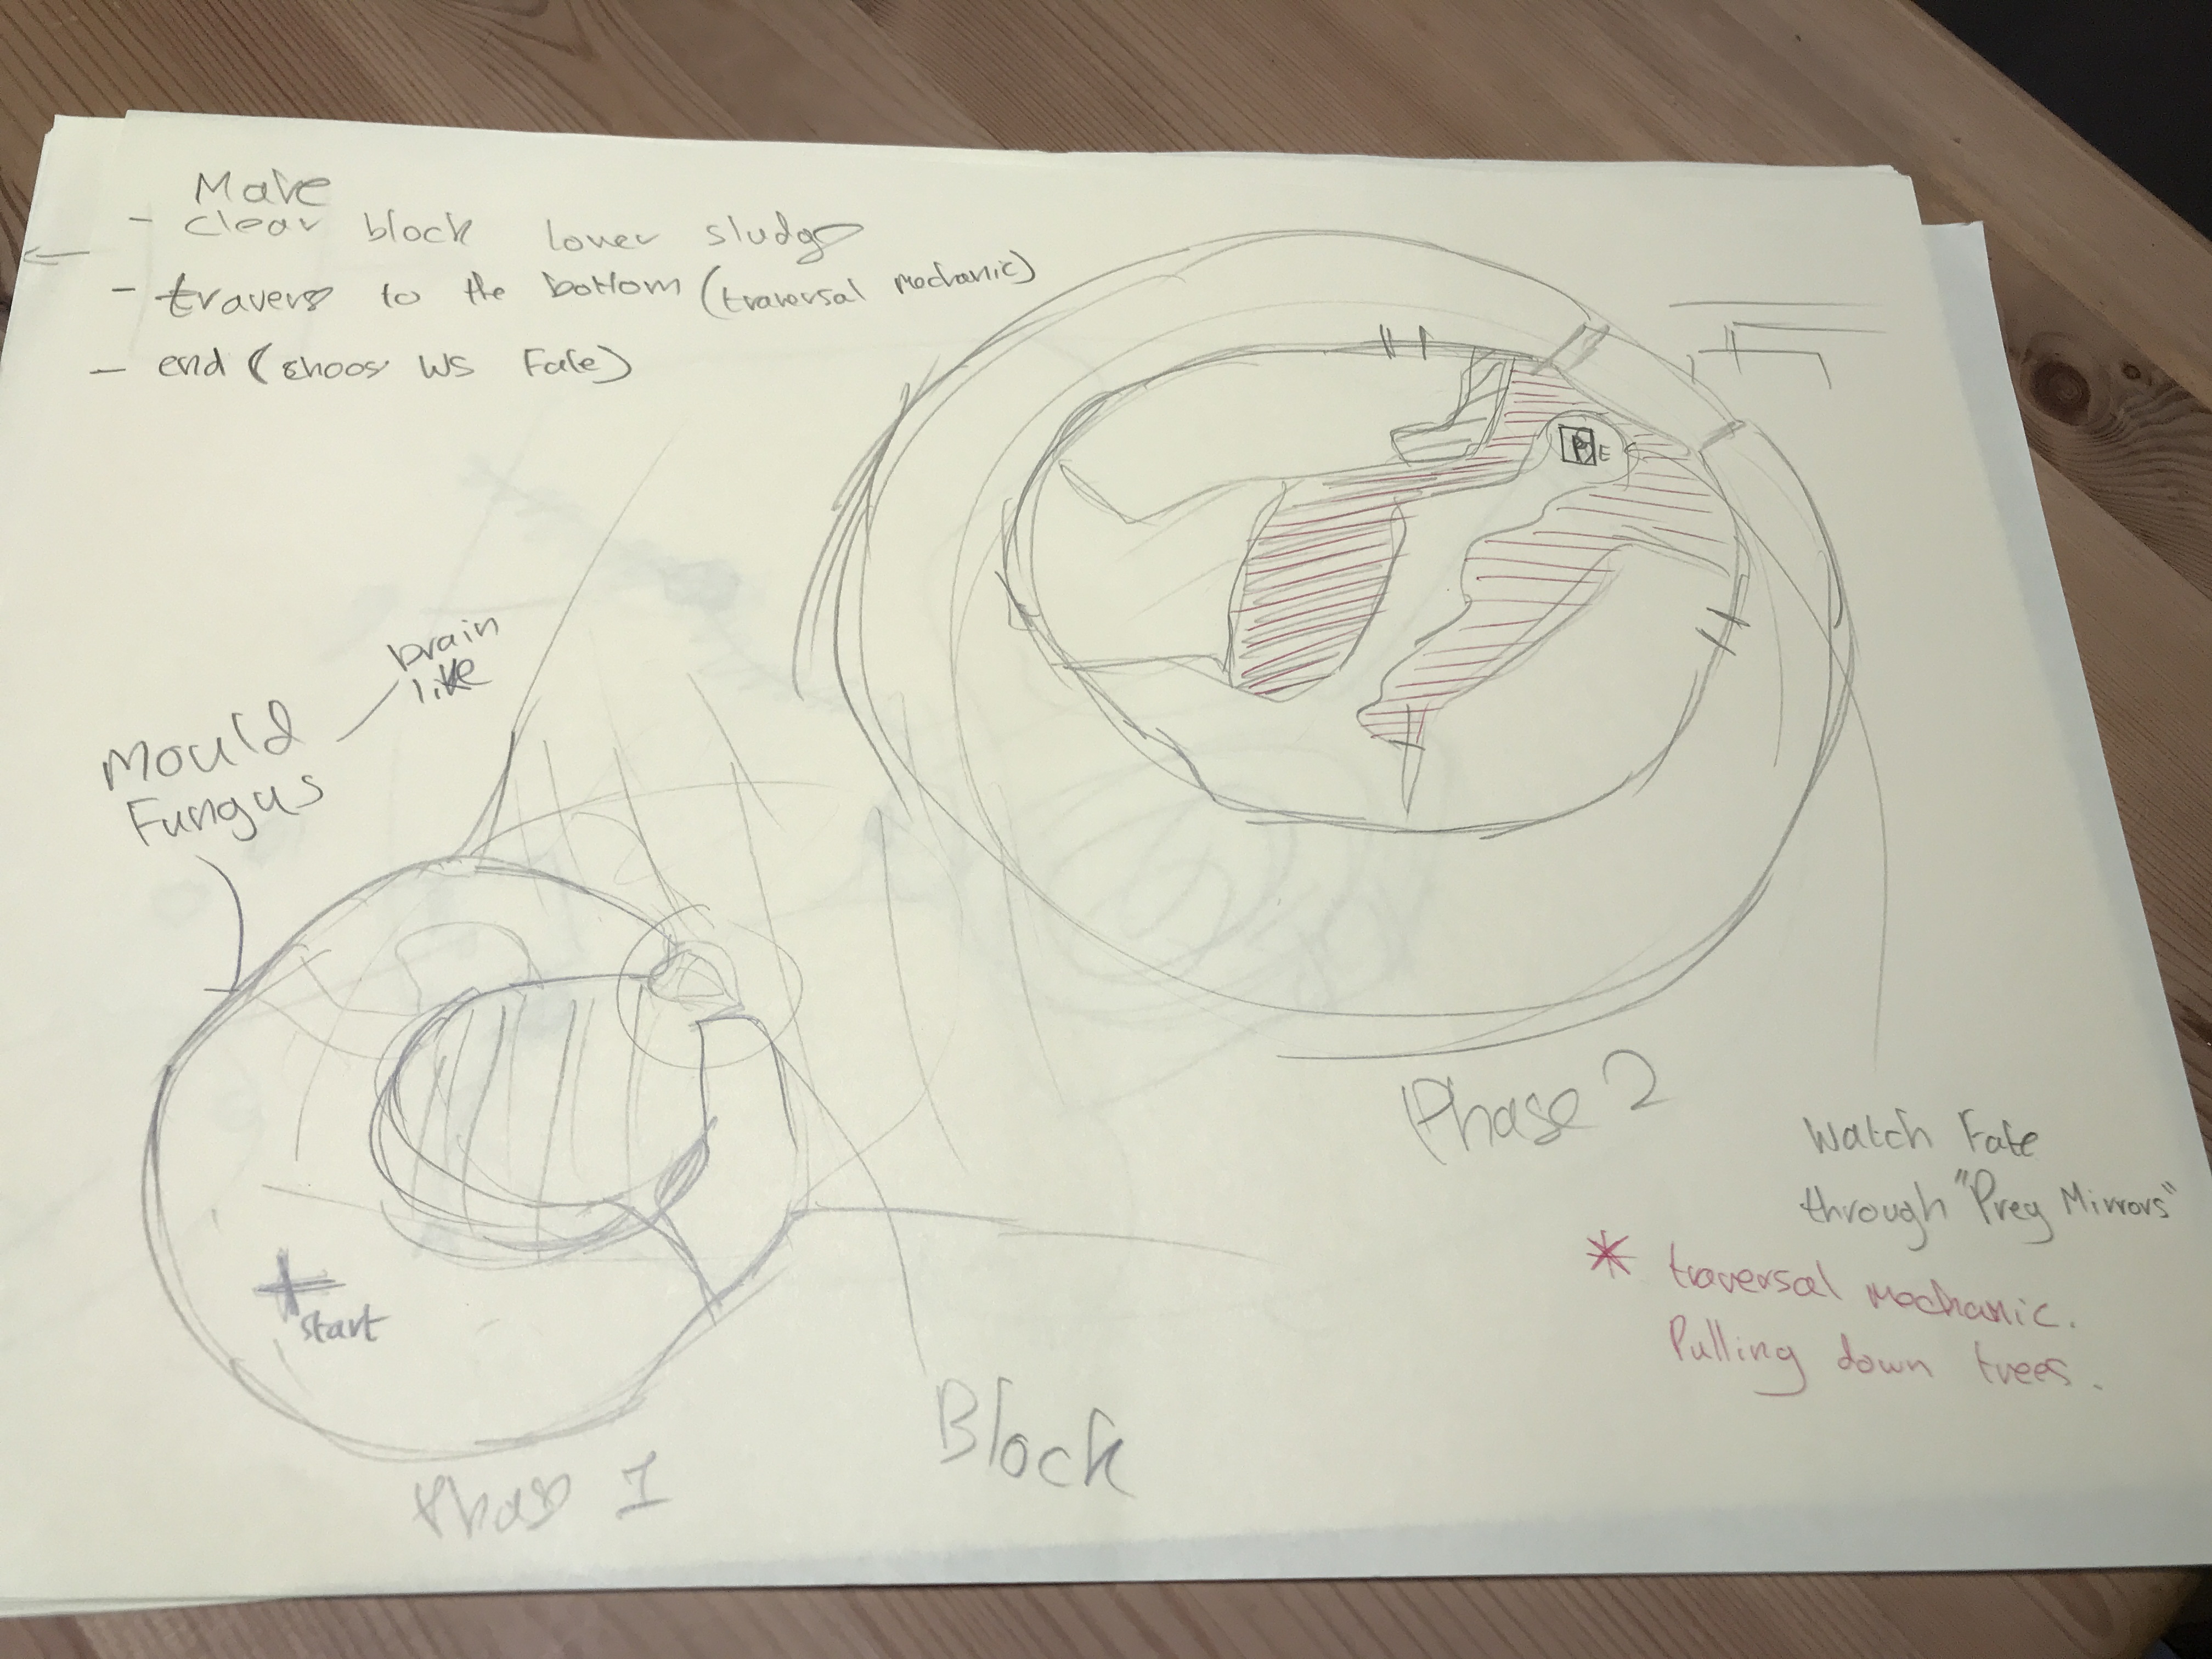 Make
- clear block lower sludge
- travers to the bottom (traversal mechanic)
- end (choos WS Fate)
brain
like
Mould
Fungus
P E
start
Phase 1
Block
Phase 2
Watch Fate
through "Preg Mirrors"
* traversal mechanic.
Pulling down trees.